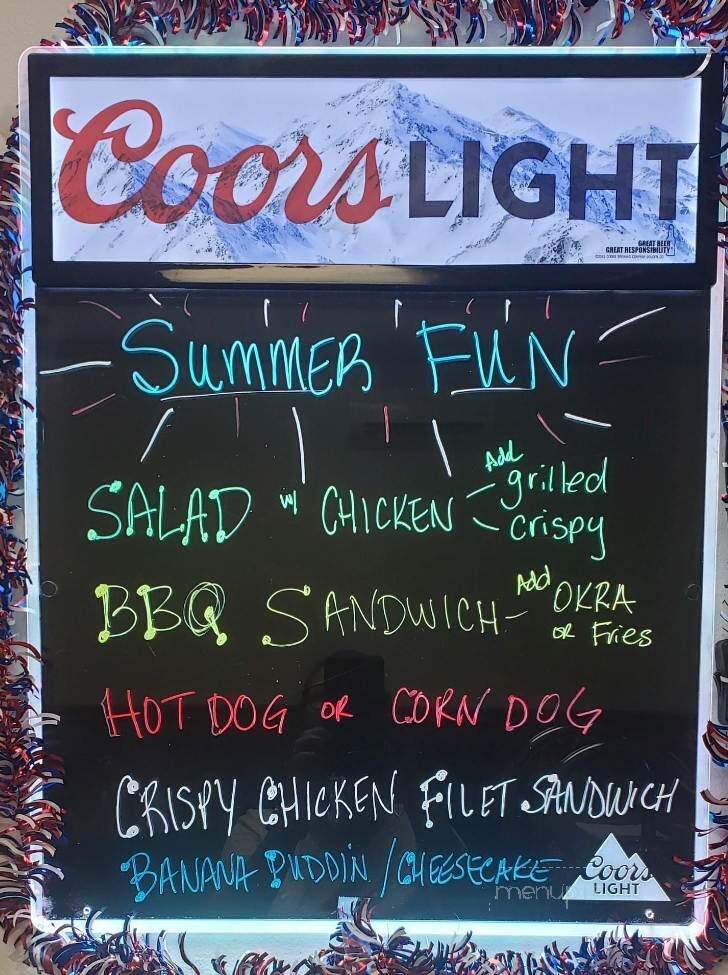 Coors LIGHT
GREAT BEER
GREAT RESPONSIBILITY
SUMMER FUN
SALAD w/ CHICKEN Add grilled
crispy
BBQ SANDWICH - Add OKRA
OR Fries
HOT DOG OR CORN DOG
CRISPY CHICKEN FILET SANDWICH
BANANA PUDDIN / CHEESECAKE
Coors
LIGHT